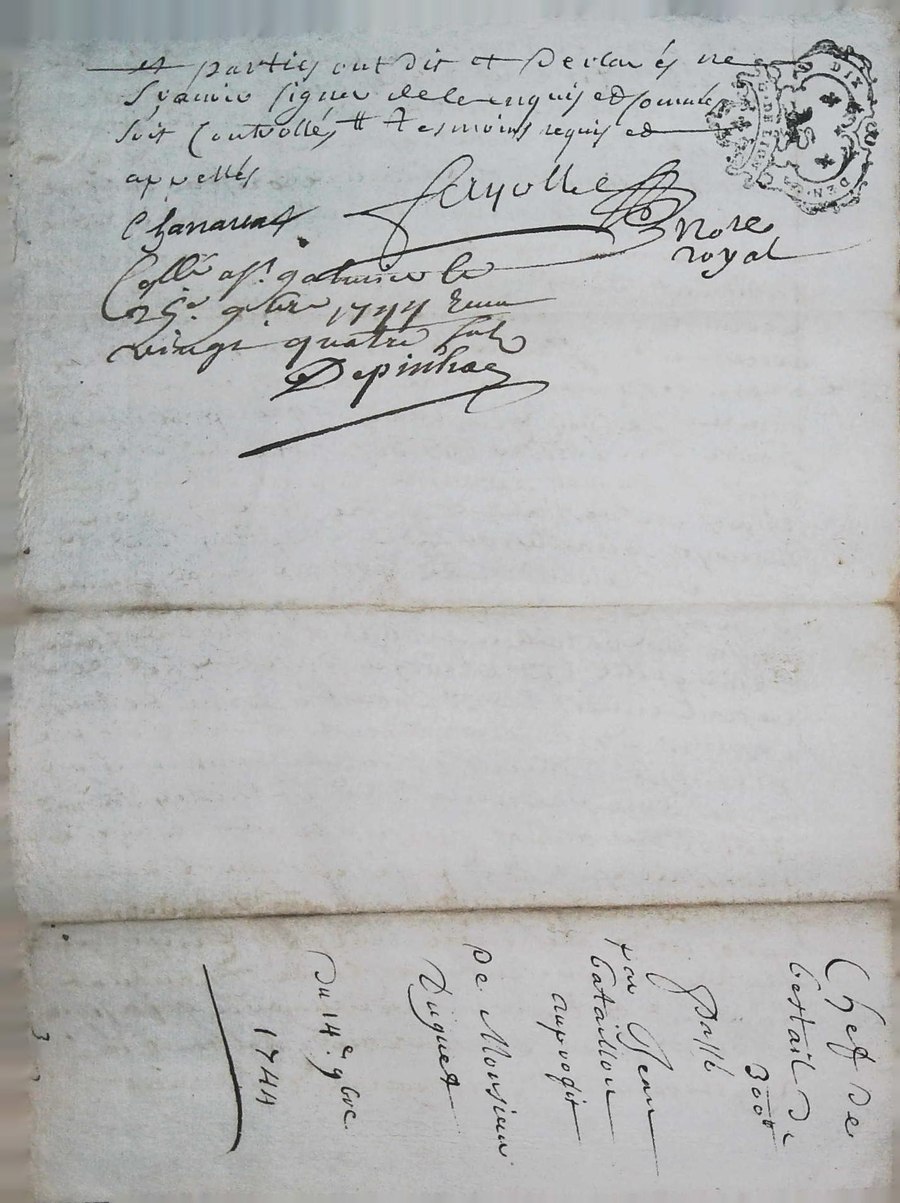 et parties ont dit et declarés ne
scavoir signer de ce enquis et sommés
soit Controllés # temoins requis et
appellés
Chanavat Fayolle
Nore
royal
Collé a St. galmier le
25e. 9bre 1744 Recu
vingt quatre sols
Depinhac
G. DE LYON
DIX DEN.
Chef de
bestail de
300#
passé
par Jean
Cataillon
au profit
de Monsieur
Duguet
Du 14e. 9bre.
1744
3